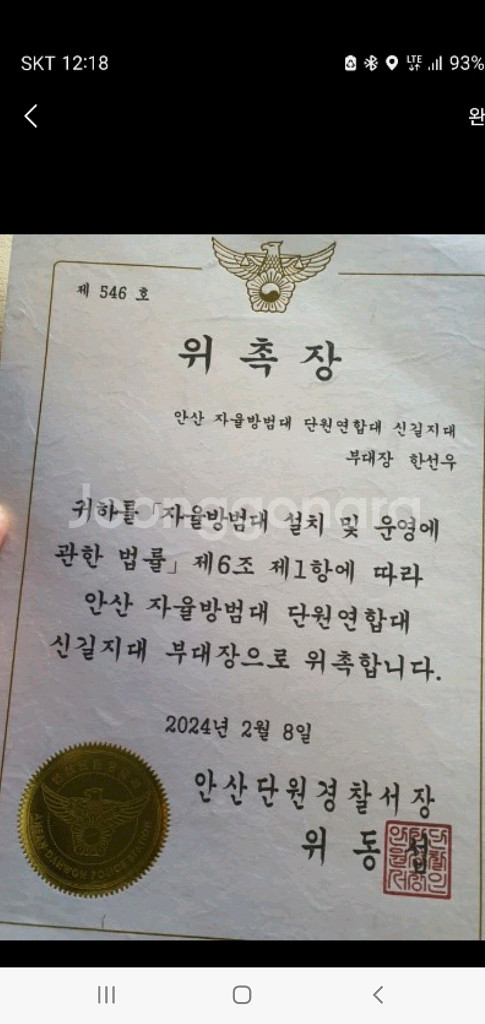 SKT 12:18
LTE 93%
완
제 546 호
위 촉 장
안산 자율방범대 단원연합대 신길지대
부대장 한선우
귀하를 「자율방범대 설치 및 운영에
Joonggonara
관한 법률」 제6조 제1항에 따라
안산 자율방범대 단원연합대
신길지대 부대장으로 위촉합니다.
2024년 2월 8일
안산단원경찰서장
위 동 섭
ANSAN DANWON POLICE STATION